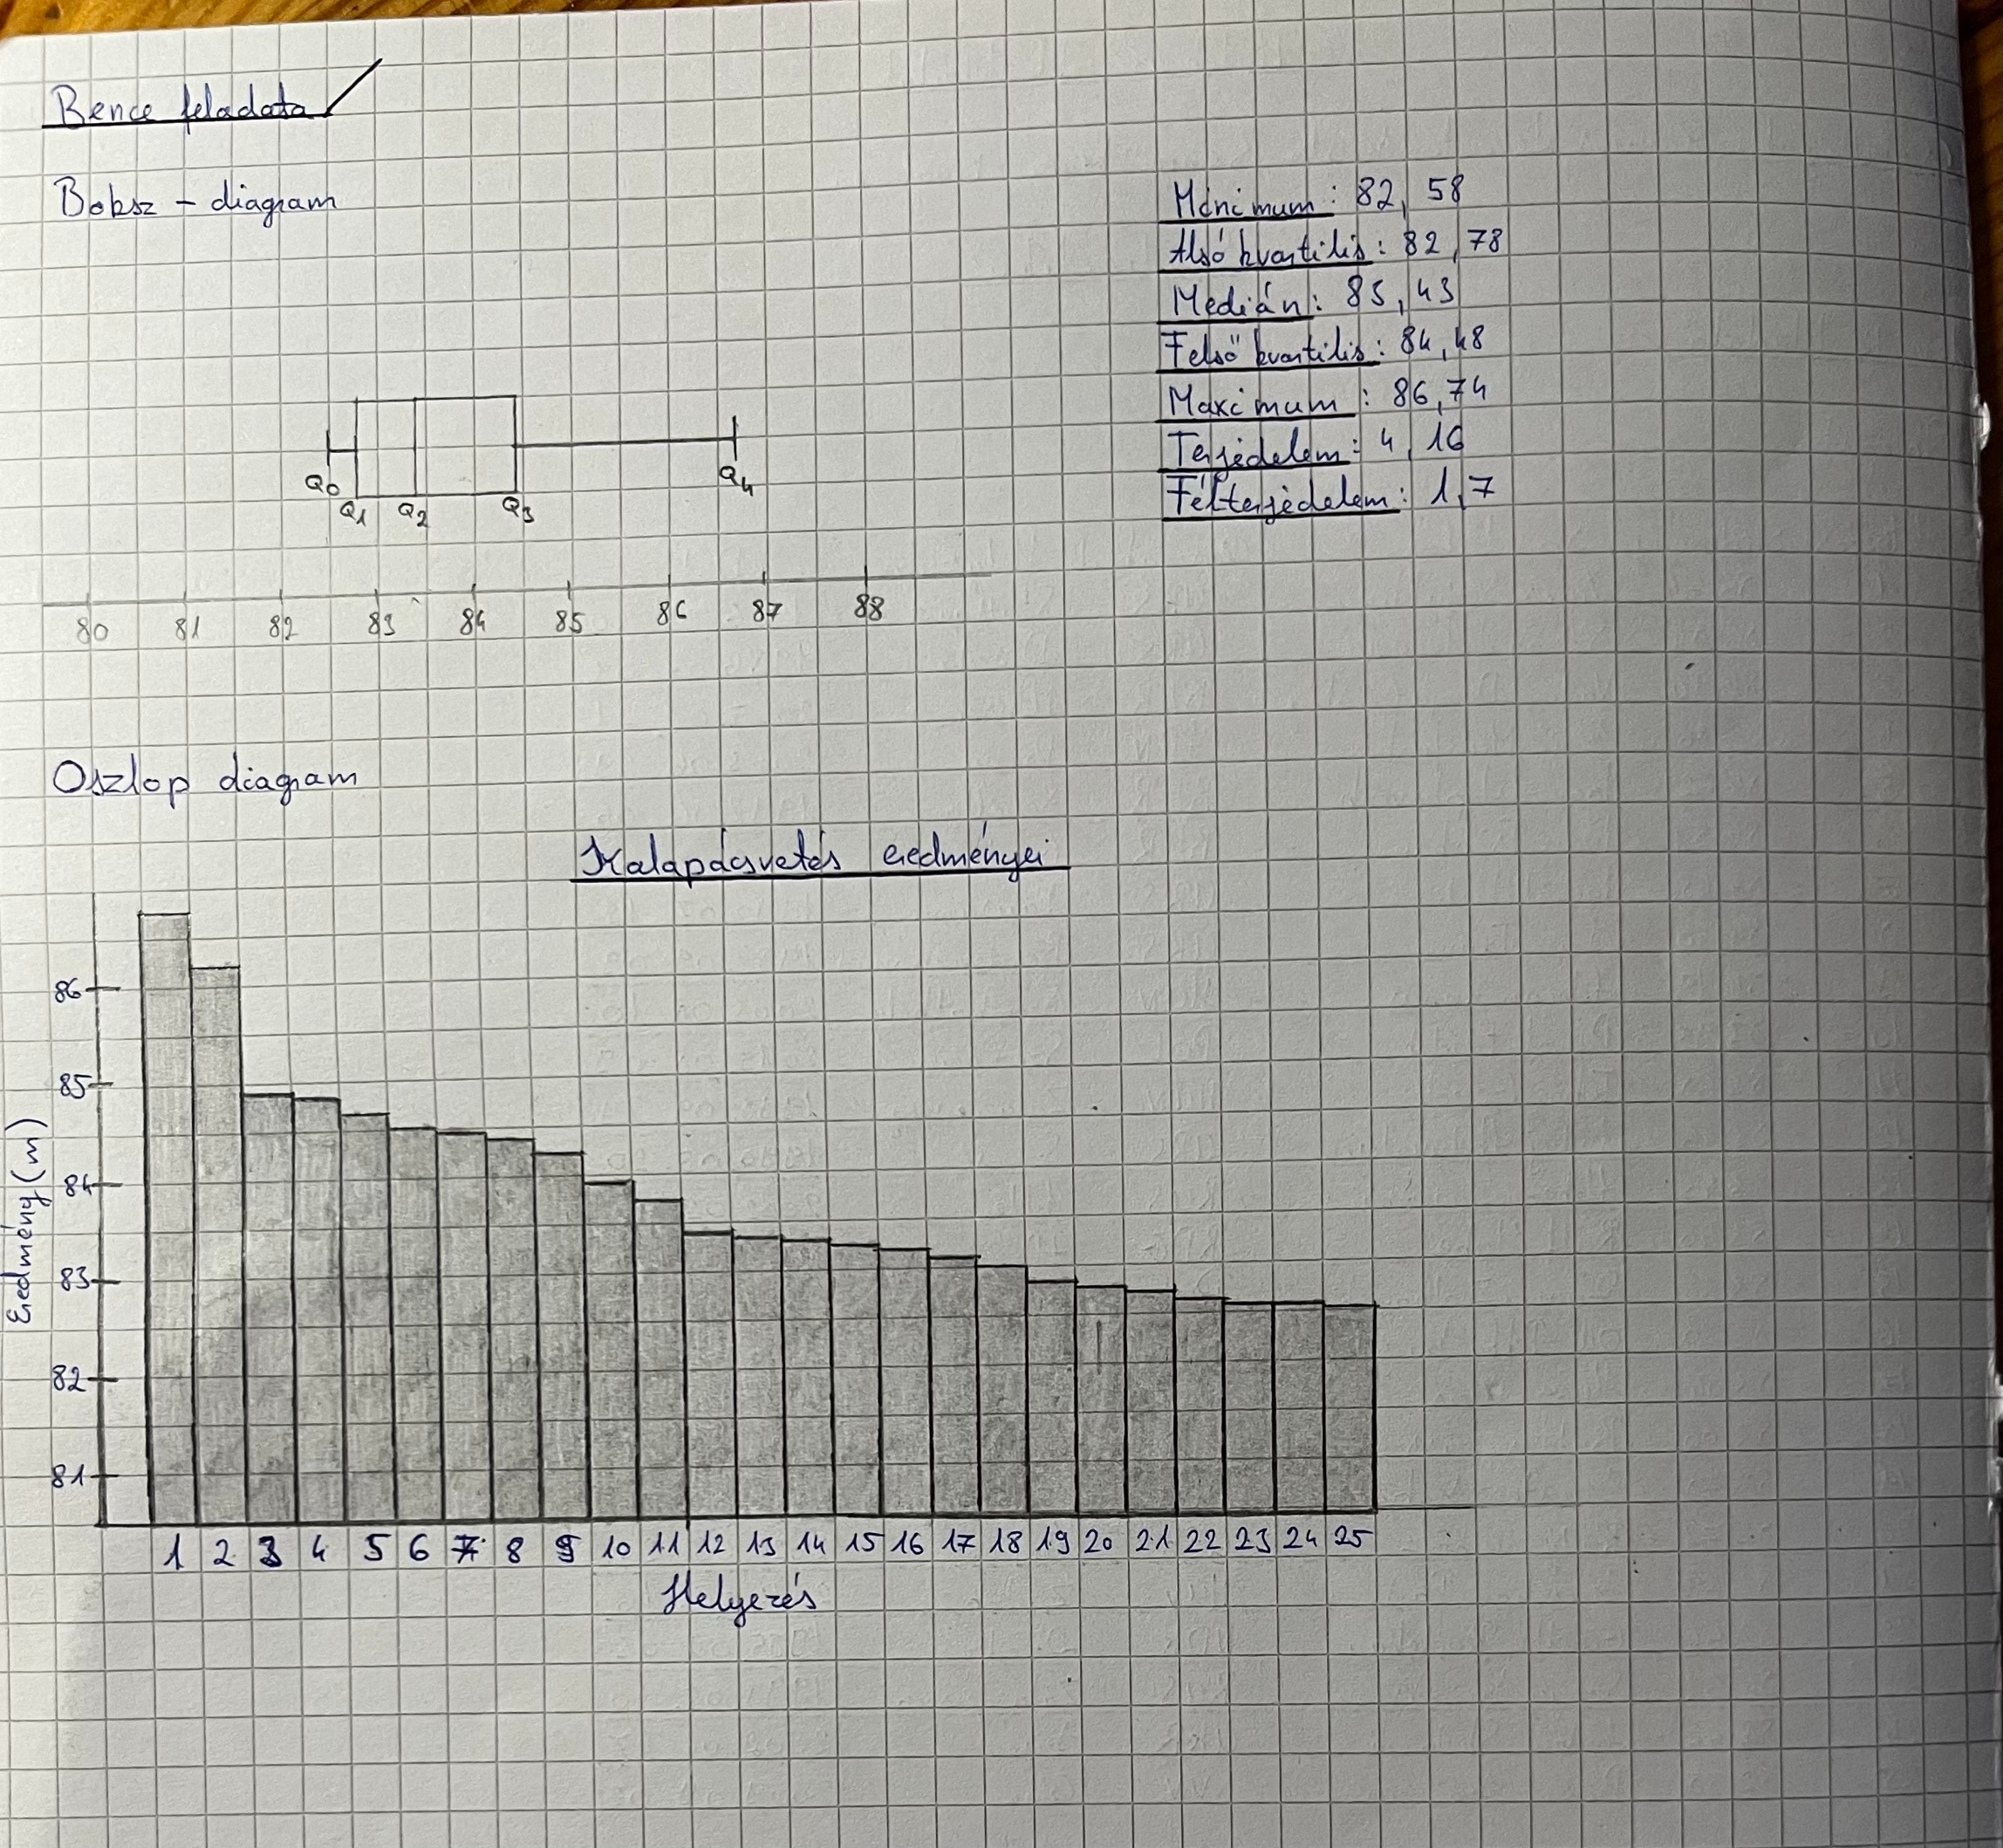 Bence feladata
Boksz - diagram
Minimum: 82,58
Alsó kvartilis: 82,78
Medián: 83,43
Felső kvartilis: 84,48
Maximum: 86,74
Terjedelem: 4,16
Félterjedelem: 1,7
Q0 Q1 Q2 Q3 Q4
80 81 82 83 84 85 86 87 88
Oszlop diagram
Kalapácsvetés eredményei
Eredmény (m)
86
85
84
83
82
81
1 2 3 4 5 6 7 8 9 10 11 12 13 14 15 16 17 18 19 20 21 22 23 24 25
Helyezés